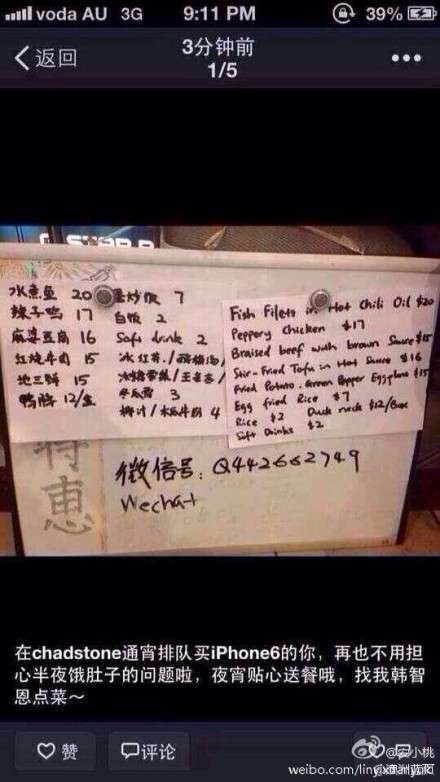 voda AU 3G 9:11 PM 39%
返回
3分钟前
1/5
水煮鱼 20
辣子鸡 17
麻婆豆腐 16
红烧牛肉 15
地三鲜 15
鸭脖 12/盒
蛋炒饭 7
白饭 2
Soft drink 2
冰红茶/酸梅汤/
冰糖雪梨/王老吉/
冬瓜露 3
椰汁/木瓜牛奶 4
Fish Filets in Hot Chili Oil $20
Peppery Chicken $17
Braised beef with brown Sauce $15
Stir-Fried Tofu in Hot Sauce $16
Fried Potato. Green Pepper Eggplant $15
Egg fried Rice $7
Rice $2 Duck neck $12/Box
Soft Drinks $2
特惠
微信号: Q442662749
Wechat
在chadstone通宵排队买iPhone6的你，再也不用担
心半夜饿肚子的问题啦，夜宵贴心送餐哦，找我韩智
恩点菜～
赞
评论